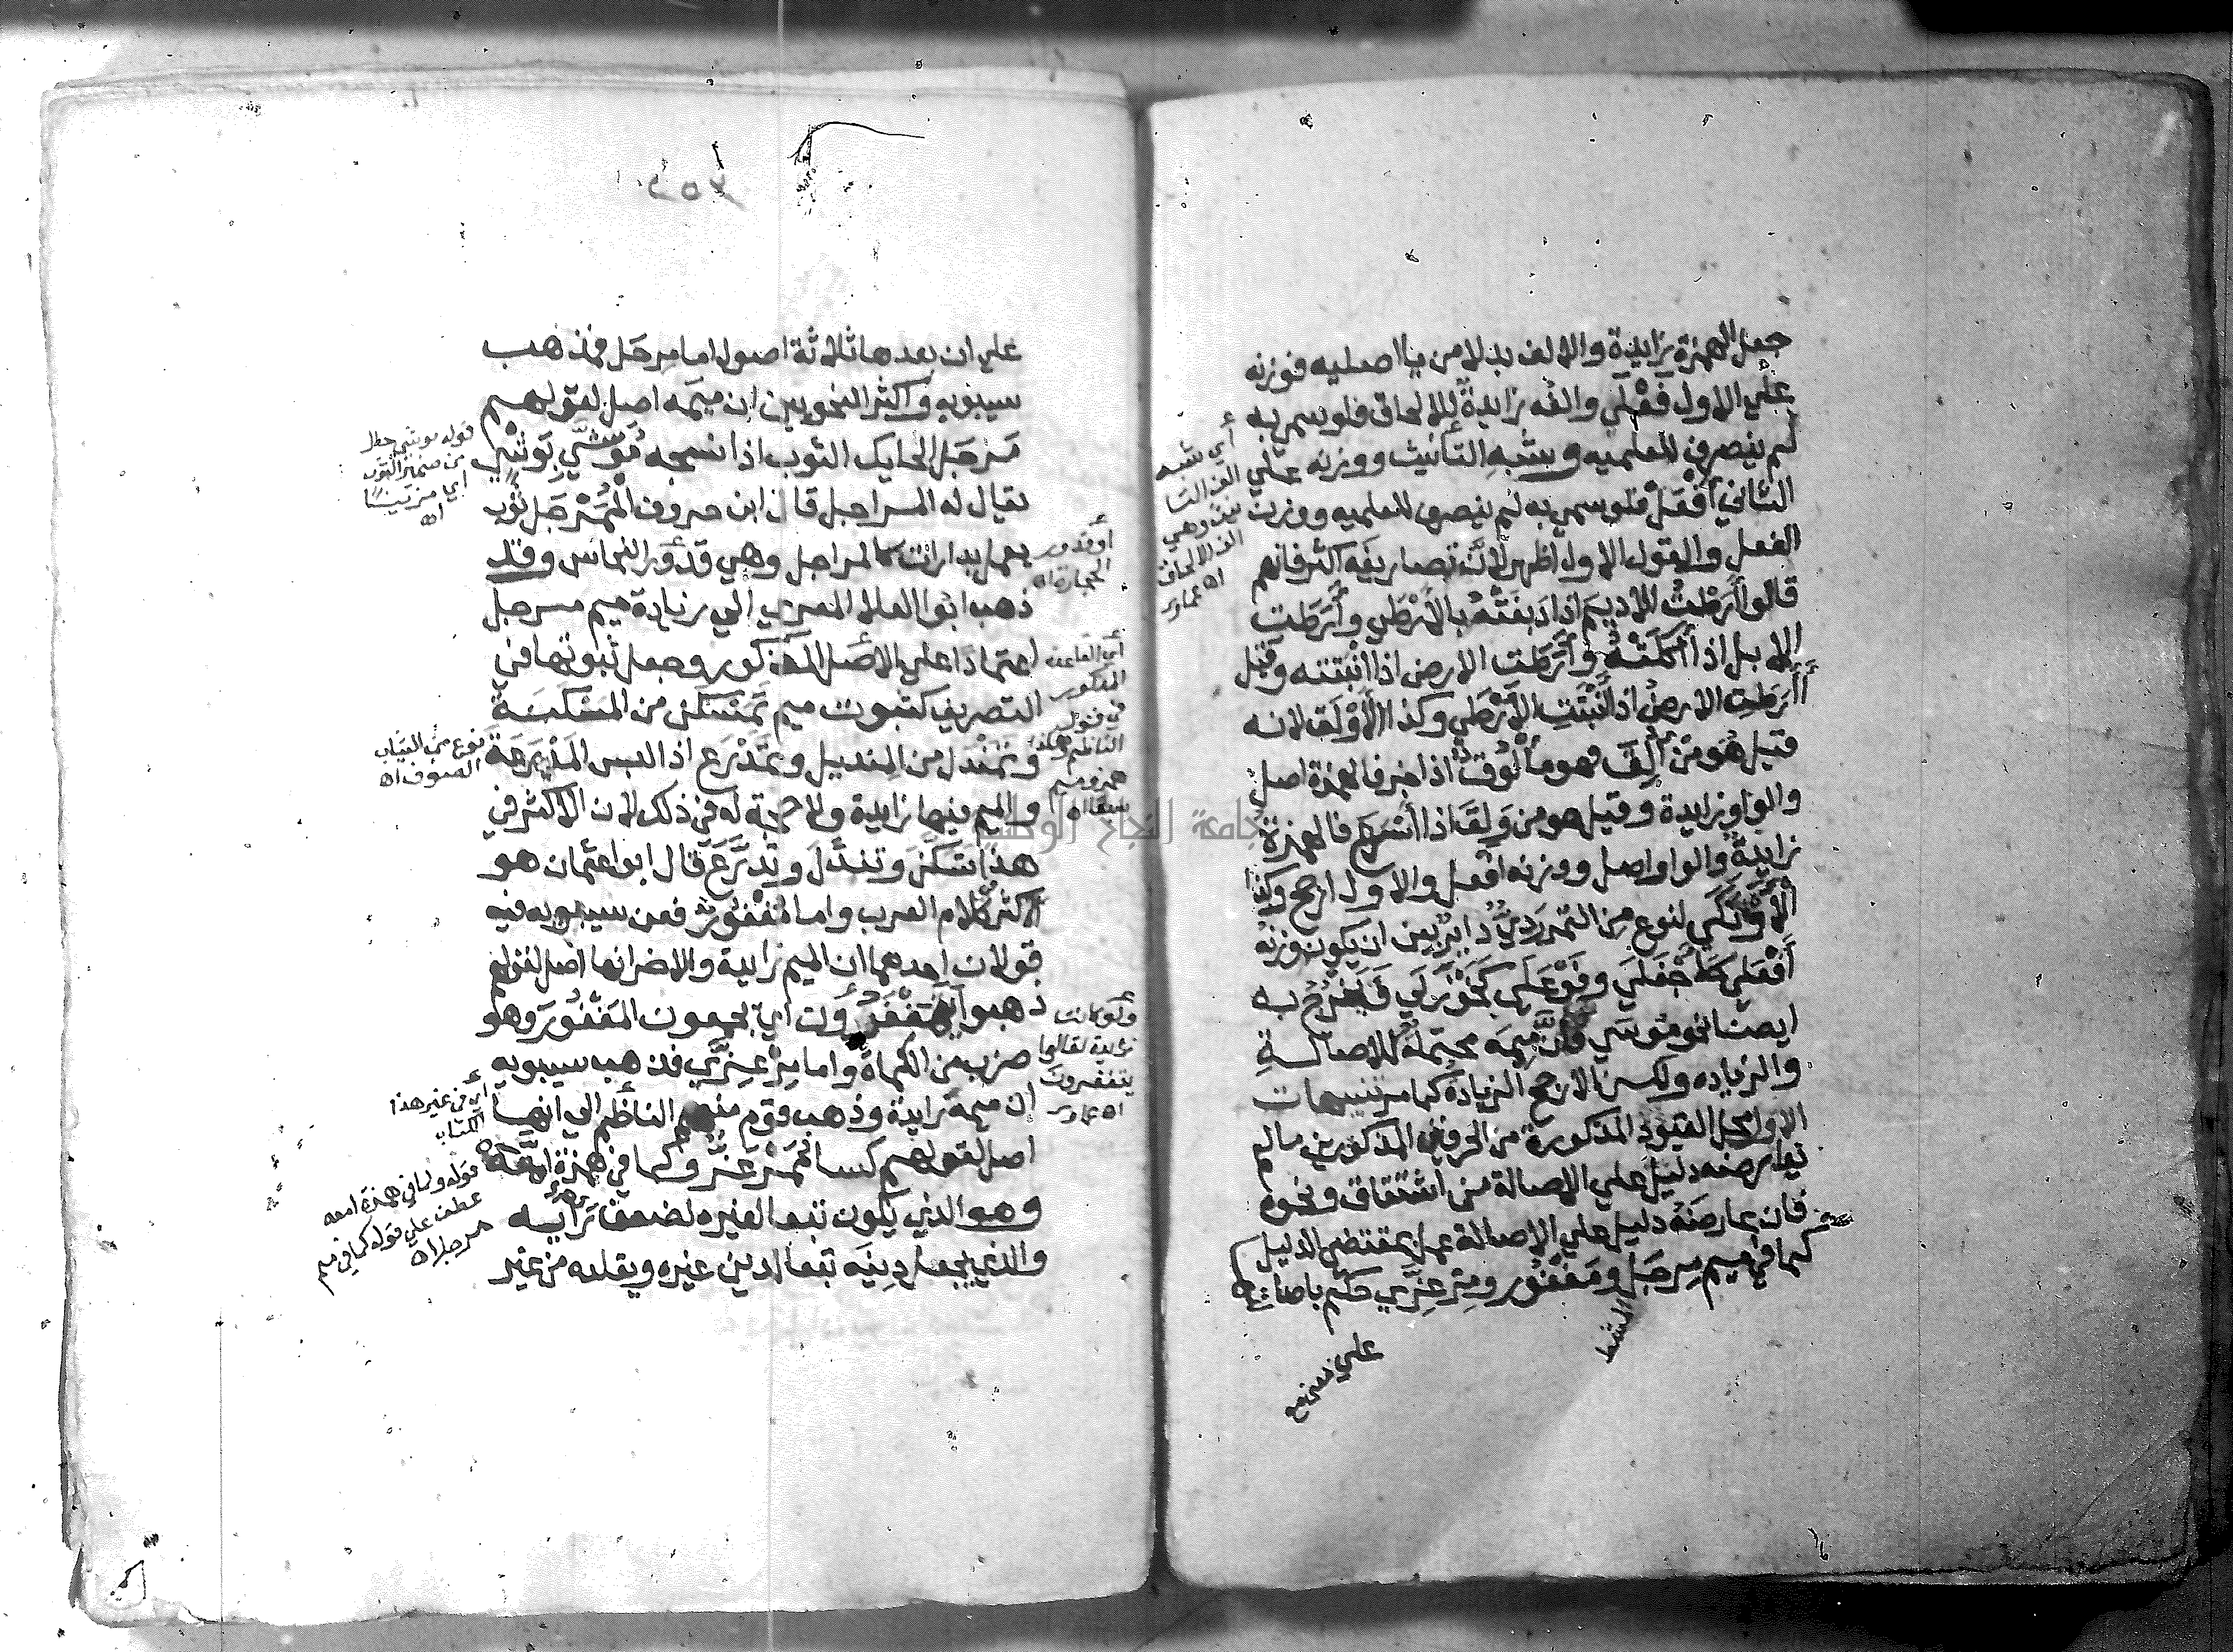 جعل الهمزة زايدة والالف بدلا من يا اصليه فوزنه
علي الاول فَعْلَي والفه زايدةٌ للالحاق فلو سمي به
لم ينصرف للعلميه وشبهِ التأنيث ووزنه علي
الثاني أَفْعَل فلو سمي به لم ينصرف للعلميه ووزن
الفعل والقول الاول اظهر لأنَّ تصاريفَه اكثر فانهم
قالوا أَرَطْتُ الاديم اذا دبغتُهُ بالأرْطَي وأَرَطَت
الابل اذا أكلَتْهُ وأَرَطَت الارض اذا أنبتته وقيل
أأرَطَتِ الارضُ اذا أنبتَتِ الأَرْطَي وكذا الأَوْلَق لانه
قيل هُوَ مِنْ أُلِقَ فهو مألُوقٌ اذا جن فالهمزة اصل
والواو زايدة وقيل هو من وَلَقَ اذا أسْرَعَ فالهمزة
زايدةٌ والواو اصل ووزنه افعل والاول ارجح وكذا
الأَوْتَكَي لنوع مِن التمر رَدِيٍّ دايرٌ بين ان يكون وزنه
أَفْعَلَي كأَجْفَلَي وفَوْعَلَي كَخَوْزَلَي
ايضا نحو موسَي فانَّ مِيمَه محتملة للاصالةِ
والزياده ولكن الارجح الزيادة كما مر تنبيهات
الاول محل القيود المذكورة من الحرفين المذكورين مالم
يعارضه دليل علي الاصالة من اشتقاق ونحوه
فان عارضَهُ دليل علي الاصالة عمل بمقتضي الدليل
كما في ميم مِرجَل ومُغفُور ومِرعِزّي حكم باصالتها
علي
أي شبه
الف التا
نيث وهي
الف الالحاق
اه
علي ان بعدها ثلاثة اصول اما مِرجَل فمذهب
سيبويه واكثر النحويين ان ميمَه اصل لقولهم
مَرْجَلَ الحايك الثوب اذا نسجه مُوَشَّي بِوَشْيٍ
يقال له المراجل قال ابن خروف الْمُمَرْجَل ثَوْب
يعمل بدارات كالمراجل وهي قدور النحاس وقد
ذهب ابو العلا المعري الي زيادة ميم مرجل
اعتمادًا علي الأصل المذكور وجعل ثبوتها في
التصريف كثبوت ميم تَمَسْكَن من المسْكَنَة
وتمندل من المنديل وتمدْرَع اذا لبس المدرعةَ
والميم فيها زايدة ولا حجة له في ذلك لان الاكثر في
هذا تَسَكَّنَ وتندَّل وتَدَرَّعَ قال ابو عثمان هو
اكثر كلام العرب واما مُغْفُور فعن سيبويه فيه
قولان احدهما ان الميم زايدة والاخر انها اصل لقولهم
ذهبوا يَتَمَغْفَرُونَ اي يجمعون المغفُورَ وهو
ضرب من الكمأة واما مِرْعِزّي فذهب سيبويه
ان ميمه زايدة وذهب قوم منهم الناظم الي انها
اصل لقولهم كساٌ مُمَرْعَز وكما في همزة امعة
وهو الذي يكون تبعا لغيره لضعف رَأيِه
والذي يجعل دِينَه تبعا لدين غيره ويقلده من غير
قوله بوشي حال
من ضمير الثوب
أي مزيّنًا
اه
أو قدور
الحجارة اه
أي القاعدة
المذكور
في قول
الناظم وهكذا
همز وميم
سبقا اه
نوع من الثياب
الصوف اه
ولو كانت
زايدة لقالوا
يتغفرون
اه
أي في غير هذا
الكتاب
قوله وكما في همزة امعه
عطف علي قوله كما في ميم
مرجل اه
جامعة النجاح الوطنية